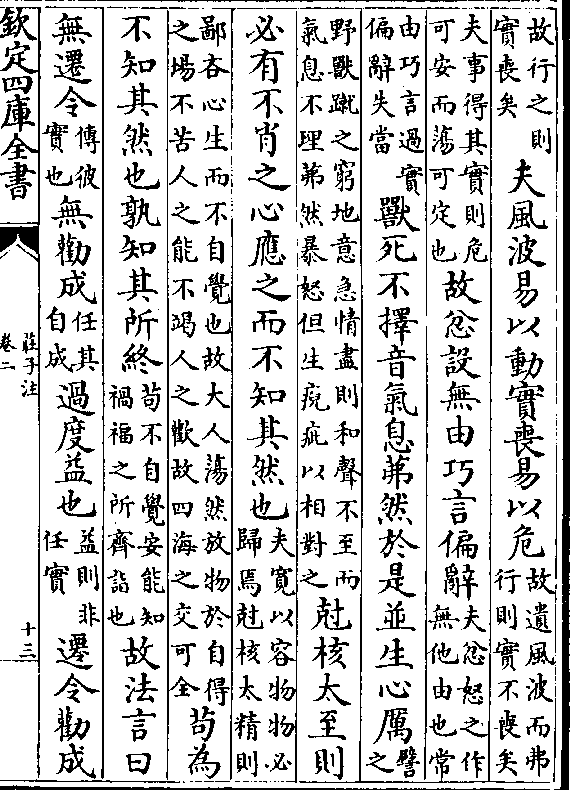 故行之則實喪矣夫風波易以動實喪易以危故遺風波而弗行則實不喪矣
夫事得其實則危可安而蕩可定也故忿設無由巧言偏辭夫忿怒之作無他由也常
由巧言過實偏辭失當獸死不擇音氣息茀然於是並生心厲譬之
野獸蹴之窮地意急情盡則和聲不至而氣息不理茀然暴怒但生疵以相對之尅核太至則
必有不肖之心應之而不知其然也夫寛以容物物必歸焉尅核太精則
鄙吝心生而不自覺也故大人蕩然放物於自得之場不苦人之能不竭人之歡故四海之交可全苟為
不知其然也孰知其所終苟不自覺安能知禍福之所齊詣也故法言曰
無遷令傳彼實也無勸成任其自成過度益也益則非任實遷令勸成
欽定四庫全書
莊子注
卷二
十三